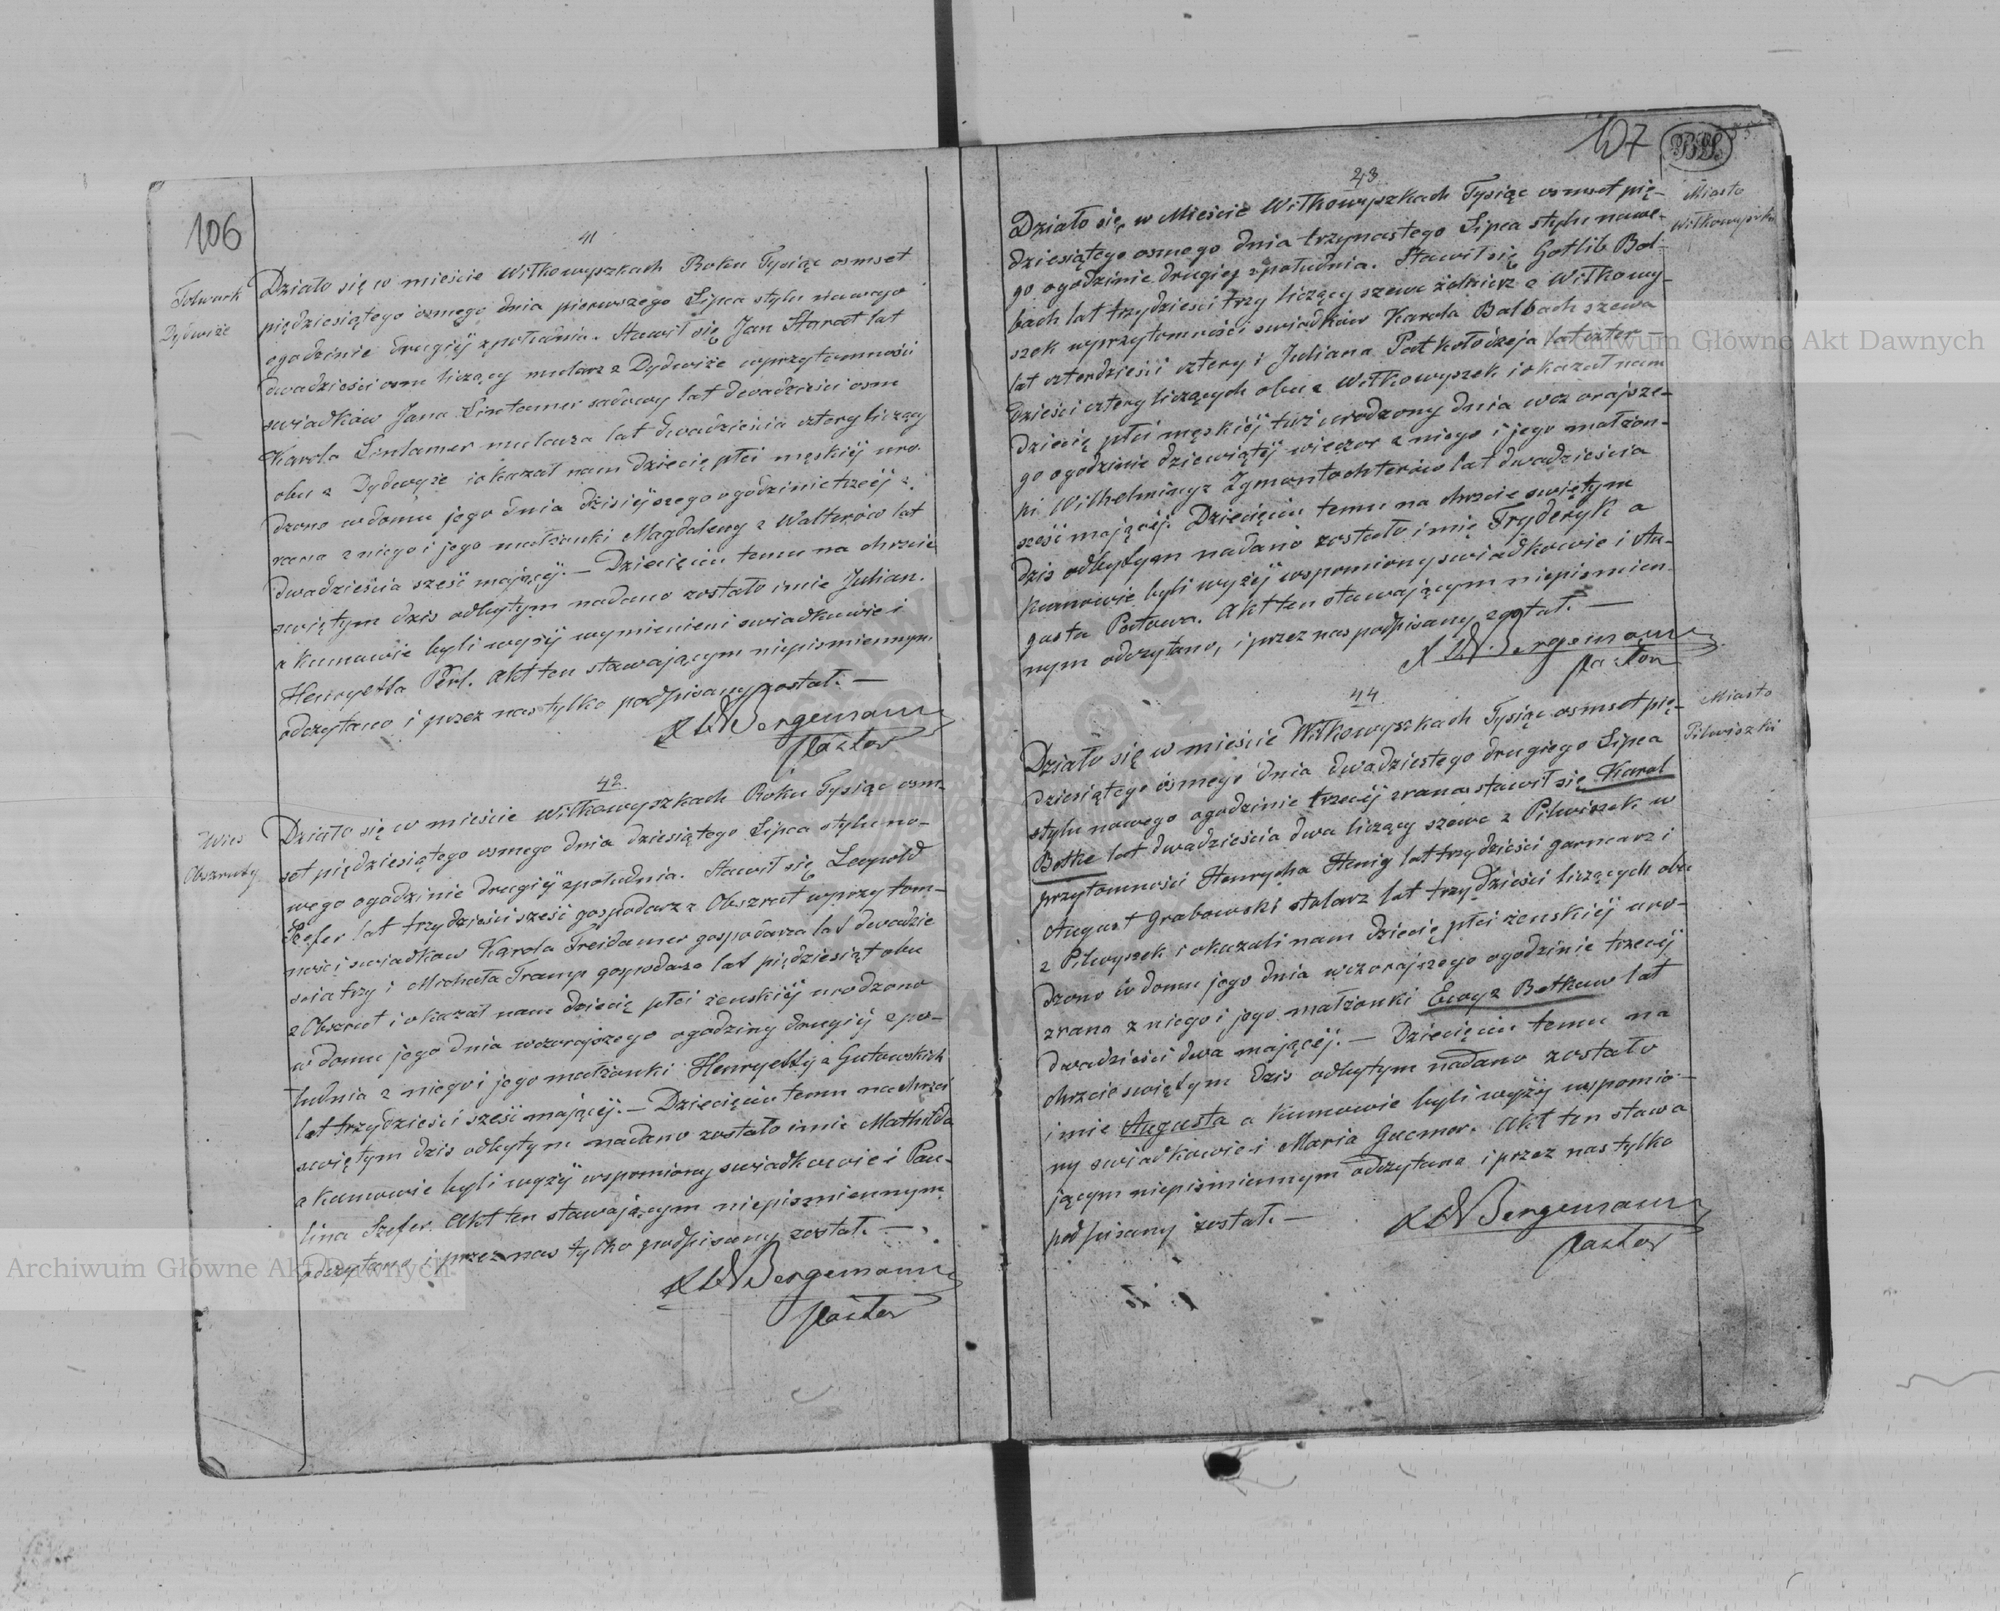 106
41
Folwark
Dydwiże
Działo się w mieście Wiłkowyszkach Roku Tysiąc osmset
pięćdziesiątego ósmego dnia pierwszego Lipca stylu nowego
ogodzinie drugiéj zpołudnia. Stawił się Jan Starat lat
dwadzieścia osm liczący mularz z Dydwiże wprzytomności
swiadków Jana Lintamer sadowy lat dwadzieścia osm
Karola Lintamer mularza lat dwadzieścia cztery liczący
obu z Dydwyże i okazał nam dziecię płci męskiéj uro
dzone w domu jego dnia dzisiéjszego ogodzinie trzeéj z
rana z niego i jego małżonki Magdaleny z Walterów lat
dwadzieścia sześć mającéj. — Dziecięciu temu na chrzcie
swiętym dzis odbytym nadano zostało imie Julian.
a kumowie byli wyżéj wymienieni swiadkowie i
Henryetta Perl. Akt ten stawającym niepismiennym
odczytano i przez nas tylko podpisany został. —
Bergemann
Pastor
42
Wieś
Obszruty
Działo się w mieście Wiłkowyszkach Roku Tysiąc osm
set piędziesiątego osmego dnia dziesiątego Lipca stylu no-
wego ogodzinie drugiéj zpołudnia. Stawił się Leopold
Szefer lat trzydzieści sześć gospodarz z Obszrut wprzytom-
ności swiadkow Karola Freidamer gospodarza lat dwadzie
scia trzy i Michała Tramp gospodarza lat pięćdziesiąt obu
z Obszrut i okazał nam dziecię płci żenskiéj urodzone
w domu jego dnia wczorajszego ogodziny drugiéj zpo-
łudnia z niego i jego małżonki Henryetty z Gutowskich
lat trzydzieści sześć mającéj. — Dziecięciu temu na chrzcie
swiętym dzis odbytym nadano zostało imie Mathilda
a kumowie byli wyżéj wspomiony swiadkowie i Pau-
lina Szefer. Akt ten stawającym niepismiennym
odczytano i przez nas tylko podpisany został. —
Bergemann
Pastor
107
43
Miasto
Wiłkowyszki
Działo się w Mieście Wiłkowyszkach Tysiąc osmset pię-
dziesiątego osmego dnia trzynastego Lipca stylu nowe-
go ogodzinie drugiej zpołudnia. Stawił się Gotlib Bal-
bach lat trydzieści trzy liczący szewc żołnierz z Wiłkowy-
szek wprzytomności swiadków Karola Balbach szewca
lat czterdzieści cztery i Juliana Pat kołodzeja lat czter-
dzieści cztery liczących obu z Wiłkowyszek i okazał nam
dziecię płci męskiéj tuż urodzony dnia wczorajsze-
go ogodzinie dziewiątéj wieczor z niego i jego małżon-
ki Wilhelminy z Zygmantochterów lat dwadzieścia
sześć mającéj. Dziecięciu temu na chrzcie swiętym
dzis odbytym nadano zostało imię Fryderyk a
kumowie byli wyżéj wspomiony swiadkowie i Au-
gusta Patowa. Akt ten stawającym niepismien
nym odczytano, i przez nas podpisany został. —
Bergemann
Pastor
44
Miasto
Pilwiszki
Działo się w mieście Wiłkowyszkach Tysiąc osmset pię-
dziesiątego ósmego dnia dwadziestego drugiego Lipca
stylu nowego ogodzinie trzeciéj zrana stawił się Karol
Botke lat dwadzieścia dwa liczący szewc z Pilwiszek w
przytomności Henrycha Henig lat trzydzieści garncarz i
August Grabowski stolarz lat trzydzieści liczących obu
z Pilwyszek i okazali nam dziecię płci żenskiéj uro-
dzone w domu jego dnia wczorajszego ogodzinie trzeciéj
zrana z niego i jego małżonki Ewy z Botkuw lat
dwadzieści dwa mającéj. — Dziecięciu temu na
chrzcie swiętym dzis odbytym nadano zostało
imie Augusta a kumowie byli wyżéj wspomio-
ny swiadkowie i Maria Gucmer. Akt ten stawa
jącym niepismiennym odczytano i przez nas tylko
podpisany został. —
Bergemann
Pastor
Archiwum Główne Akt Dawnych
Archiwum Główne Akt Dawnych